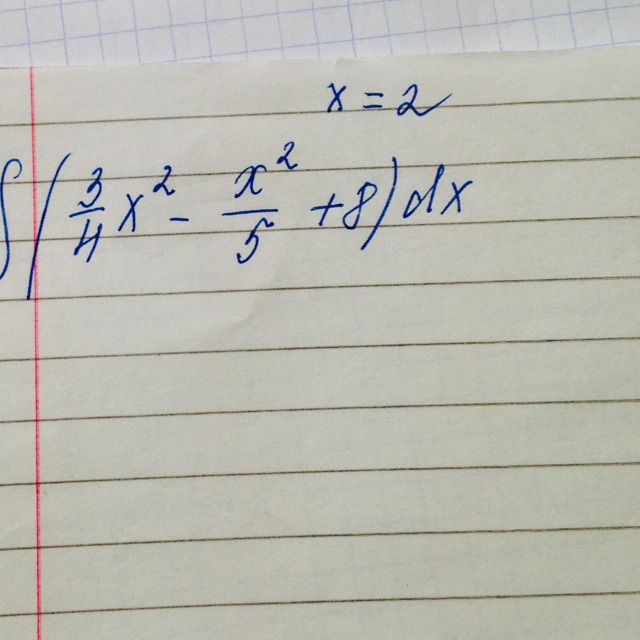 x = 2
∫ (3/4 x² - x²/5 + 8) dx